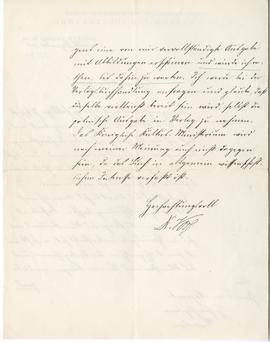 zeul eine von mir vervollständigte Ausgabe
mit Abbildungen erscheinen und würde ich
bis dahin zu warten. Ich werde bei der
Verlagsbuchhandlung anfragen und glaube daß
dieselbe vielleicht bereit sein wird, selbst die
polnische Ausgabe in Verlag zu nehmen.
Das Königlich Kultus Ministerium wird
nach meiner Meinung auch nicht dagegen
sein, da das Buch in allgemein wissenschaft-
lichem Interesse verfasst ist.
Hochachtungsvoll